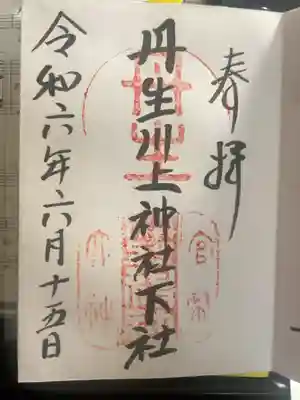 奉拝
丹生川上神社下社
令和六年六月十五日